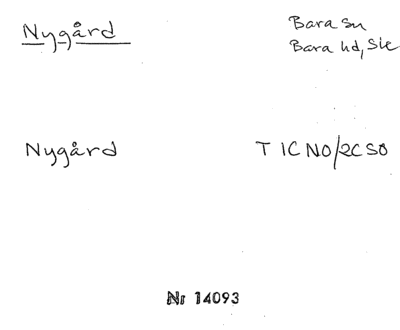 Nygård
Bara sn
Bara hd, Sk
Nygård
T 1C NO/2C SO
Nr 14093